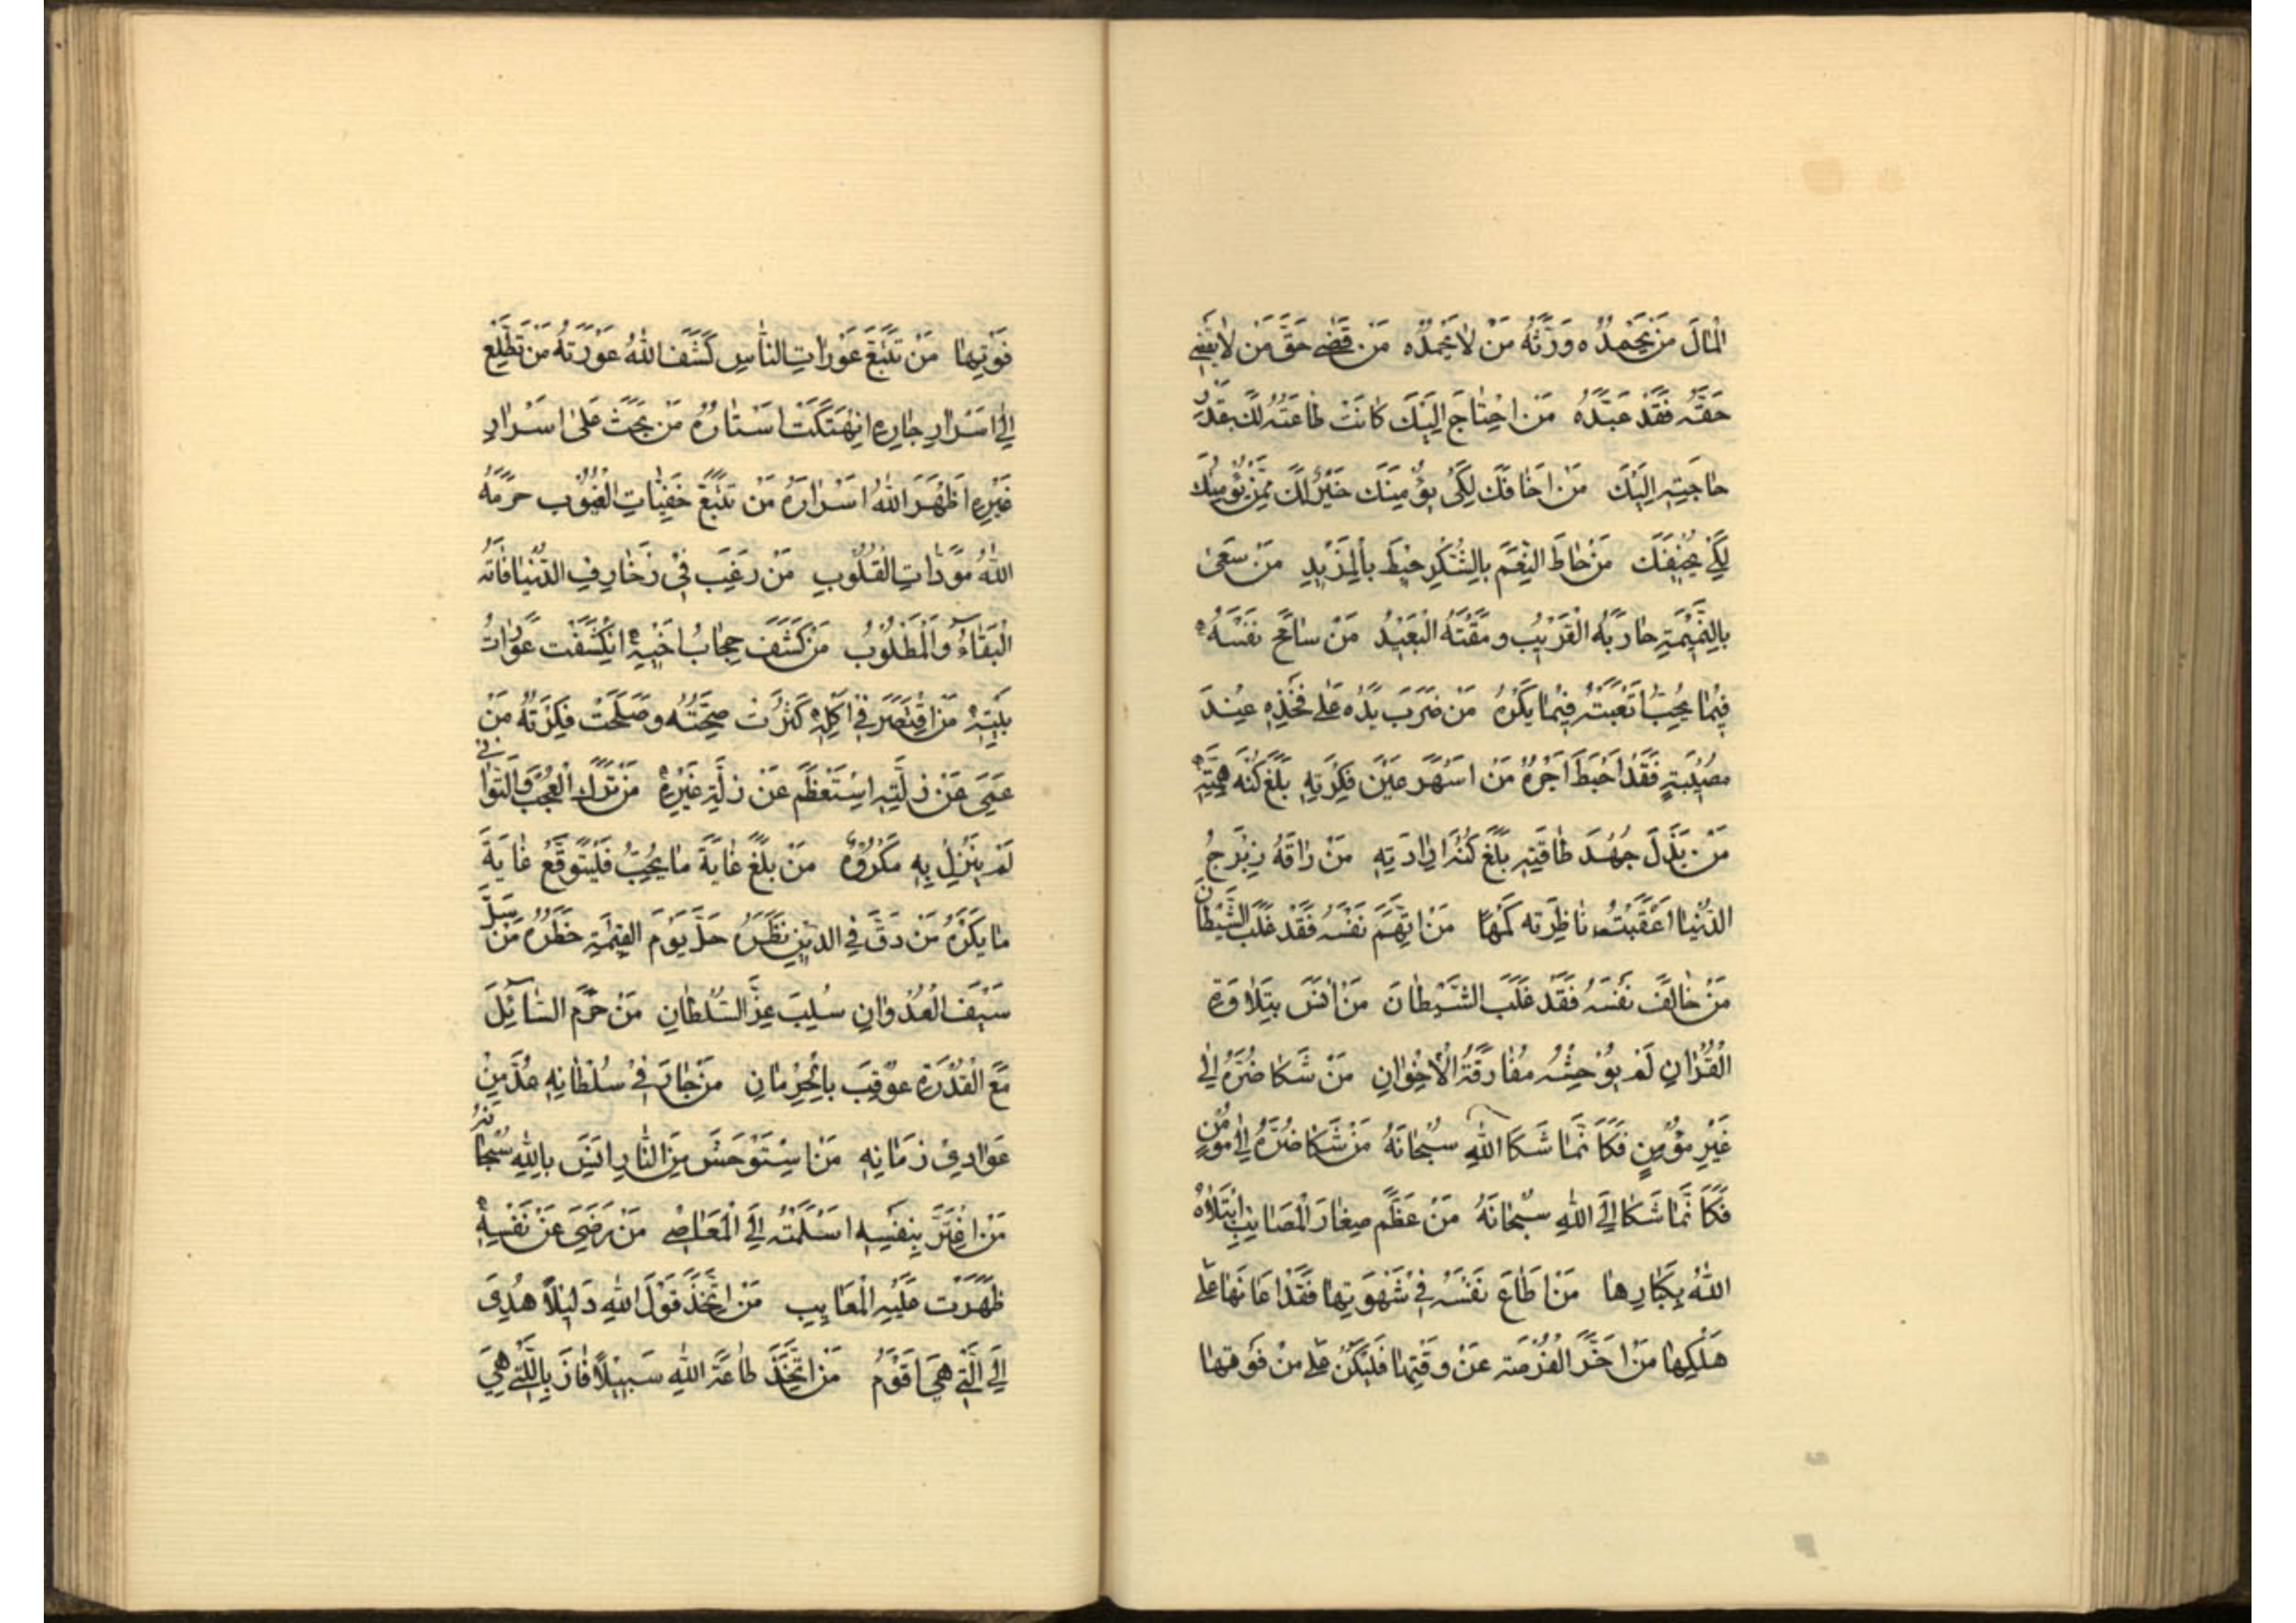 الْمَالَ مَنْ يَحْمَدُهُ وَرَّثَهُ مَنْ لَا يَحْمَدُهُ مَنْ قَضَى حَقَّ مَنْ لَا يَقْضِي
حَقَّهُ فَقَدْ عَبَّدَهُ مَنِ احْتَاجَ إِلَيْكَ كَانَتْ طَاعَتُهُ لَكَ بِقَدْرِ
حَاجَتِهِ إِلَيْكَ مَنْ اَخَافَكَ لِكَيْ يُؤْمِنَكَ خَيْرٌ لَكَ مِمَّنْ يُؤْمِنُكَ
لِكَيْ يُخِيفَكَ مَنْ حَاطَ النِّعَمَ بِالشُّكْرِ حِيطَ بِالْمَزِيدِ مَنْ سَعَى
بِالنَّمِيمَةِ حَارَبَهُ الْقَرِيبُ وَمَقَتَهُ الْبَعِيدُ مَنْ سَامَحَ نَفْسَهُ
فِيمَا يُحِبُّ اَتْعَبَتْهُ فِيمَا يَكْرَهُ مَنْ ضَرَبَ يَدَهُ عَلَى فَخِذِهِ عِنْدَ
مُصِيبَةٍ فَقَدْ اَحْبَطَ اَجْرَهُ مَنْ اَسْهَرَ عَيْنَ فِكْرَتِهِ بَلَغَ كُنْهَ هِمَّتِهِ
مَنْ بَذَلَ جُهْدَ طَاقَتِهِ بَلَغَ كُنْهَ اِرَادَتِهِ مَنْ رَاقَهُ زِبْرِجُ
الدُّنْيَا اَعْقَبَتْ نَاظِرَتِهِ كَمَهًا مَنِ اتَّهَمَ نَفْسَهُ فَقَدْ غَلَبَ الشَّيْطَانَ
مَنْ خَالَفَ نَفْسَهُ فَقَدْ غَلَبَ الشَّيْطَانَ مَنْ اَنِسَ بِتِلَاوَةِ
الْقُرْآنِ لَمْ يُوحِشْهُ مُفَارَقَةُ الْاِخْوَانِ مَنْ شَكَا ضُرَّهُ اِلَى
غَيْرِ مُؤْمِنٍ فَكَاَنَّمَا شَكَا اللهَ سُبْحَانَهُ مَنْ شَكَا ضُرَّهُ اِلَى مُؤْمِنٍ
فَكَاَنَّمَا شَكَا اِلَى اللهِ سُبْحَانَهُ مَنْ عَظَّمَ صِغَارَ الْمَصَائِبِ ابْتَلَاهُ
اللهُ بِكِبَارِهَا مَنْ اَطَاعَ نَفْسَهُ فِي شَهْوَتِهَا فَقَدْ اَعَانَهَا عَلَى
هَلْكِهَا مَنْ اَخَّرَ الْفُرْصَةَ عَنْ وَقْتِهَا فَلْيَكُنْ عَلَى مِنْ فَوْتِهَا
فَوْتِهَا مَنْ تَتَبَّعَ عَوْرَاتِ النَّاسِ كَشَفَ اللهُ عَوْرَتَهُ مَنْ تَطَلَّعَ
اِلَى اَسْرَارِ جَارِهِ انْهَتَكَتْ اَسْتَارُهُ مَنْ بَحَثَ عَلَى اَسْرَارِ
غَيْرِهِ اَظْهَرَ اللهُ اَسْرَارَهُ مَنْ تَتَبَّعَ خَفِيَّاتِ الْعُيُوبِ حَرَّمَهُ
اللهُ مَوَدَّاتِ الْقُلُوبِ مَنْ رَغِبَ فِي زَخَارِفِ الدُّنْيَا فَاتَهُ
الْبَقَاءُ وَالْمَطْلُوبُ مَنْ كَشَفَ حِجَابَ اَخِيهِ انْكَشَفَتْ عَوْرَاتُ
بَيْتِهِ مَنِ اقْتَصَرَ فِي اَكْلِهِ كَثُرَتْ صِحَّتُهُ وَصَلَحَتْ فِكْرَتُهُ مَنْ
عَمِيَ عَنْ زَلَّتِهِ اسْتَعْظَمَ عَنْ زَلَّةِ غَيْرِهِ مَنْ تَرَكَ الْعُجْبَ وَالتَّوَانِي
لَمْ يَنْزِلْ بِهِ مَكْرُوهٌ مَنْ بَلَغَ غَايَةَ مَا يُحِبُّ فَلْيَتَوَقَّعْ غَايَةَ
مَا يَكْرَهُ مَنْ دَقَّ فِي الدِّينِ نَظَرُهُ جَلَّ يَوْمَ الْقِيٰمَةِ خَطَرُهُ مَنْ سَلَّ
سَيْفَ الْعُدْوَانِ سُلِبَ عِزَّ السُّلْطَانِ مَنْ حَرَمَ السَّائِلَ
مَعَ الْقُدْرَةِ عُوقِبَ بِالْحِرْمَانِ مَنْ جَارَ فِي سُلْطَانِهِ عُدَّ مِنْ
عَوَادِي زَمَانِهِ مَنِ اسْتَوْحَشَ مِنَ النَّاسِ اَنِسَ بِاللهِ سُبْحَانَهُ
مَنِ اغْتَرَّ بِنَفْسِهِ اَسْلَمَتْهُ اِلَى الْمَعَاصِي مَنْ رَضِيَ عَنْ نَفْسِهِ
ظَهَرَتْ عَلَيْهِ الْمَعَايِبِ مَنِ اتَّخَذَ قَوْلَ اللهِ دَلِيلًا هُدِيَ
اِلَى الَّتِي هِيَ اَقْوَمُ مَنِ اتَّخَذَ طَاعَةَ اللهِ سَبِيلًا فَازَ بِالَّتِي هِيَ